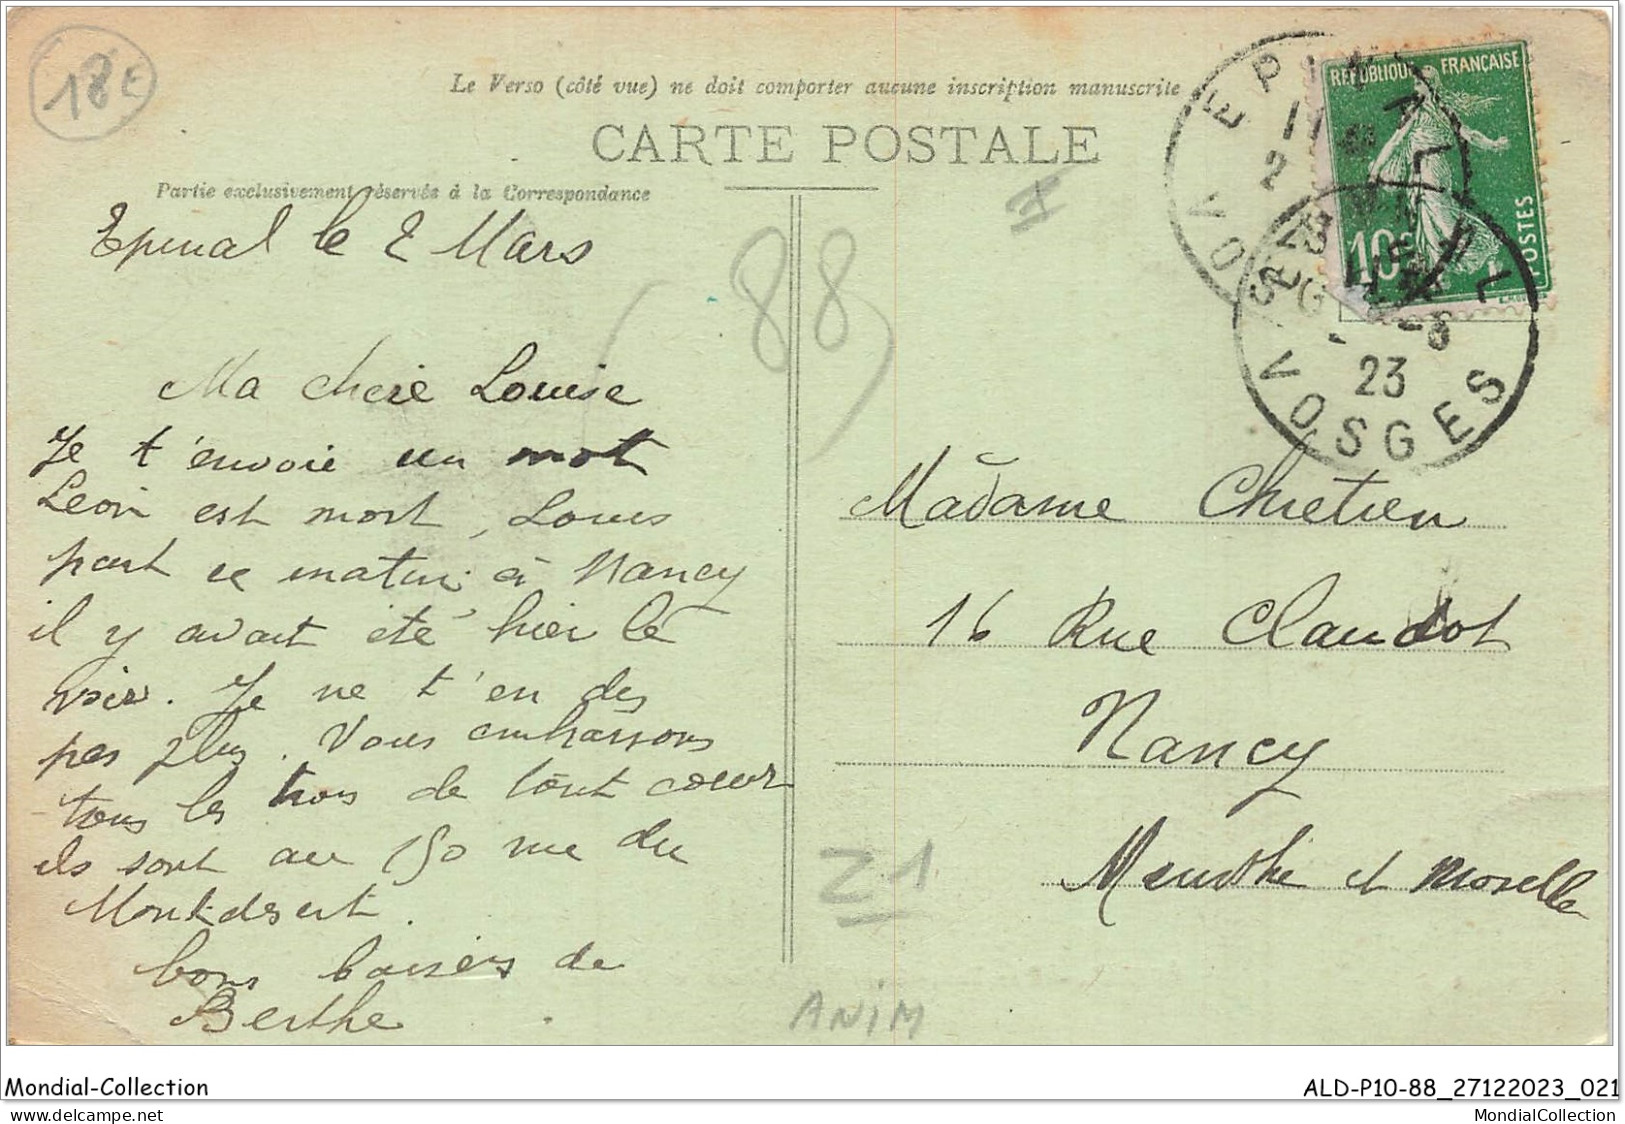 18E
Le Verso (côté vue) ne doit comporter aucune inscription manuscrite
CARTE POSTALE
Partie exclusivement réservée à la Correspondance
Epinal le 2 Mars
88
Ma chere Louise
Je t'envoie un mot
Leon est mort, Louis
part ce matin à Nancy
il y avait été hier le
voir. Je ne t'en dis
pas plus. Vous embrassons
tous les trois de tout coeur
ils sont au 150 rue du
Montdesert.
bons baisers de
Berthe
EPINAL
VOSGES
23
VOSGES
REPUBLIQUE FRANÇAISE
10c
POSTES
Madame Chretien
16 Rue Claudot
Nancy
Meurthe et Moselle
Z1
ANIM
Mondial-Collection
ALD-P10-88_27122023_021
https://www.delcampe.net
MondialCollection